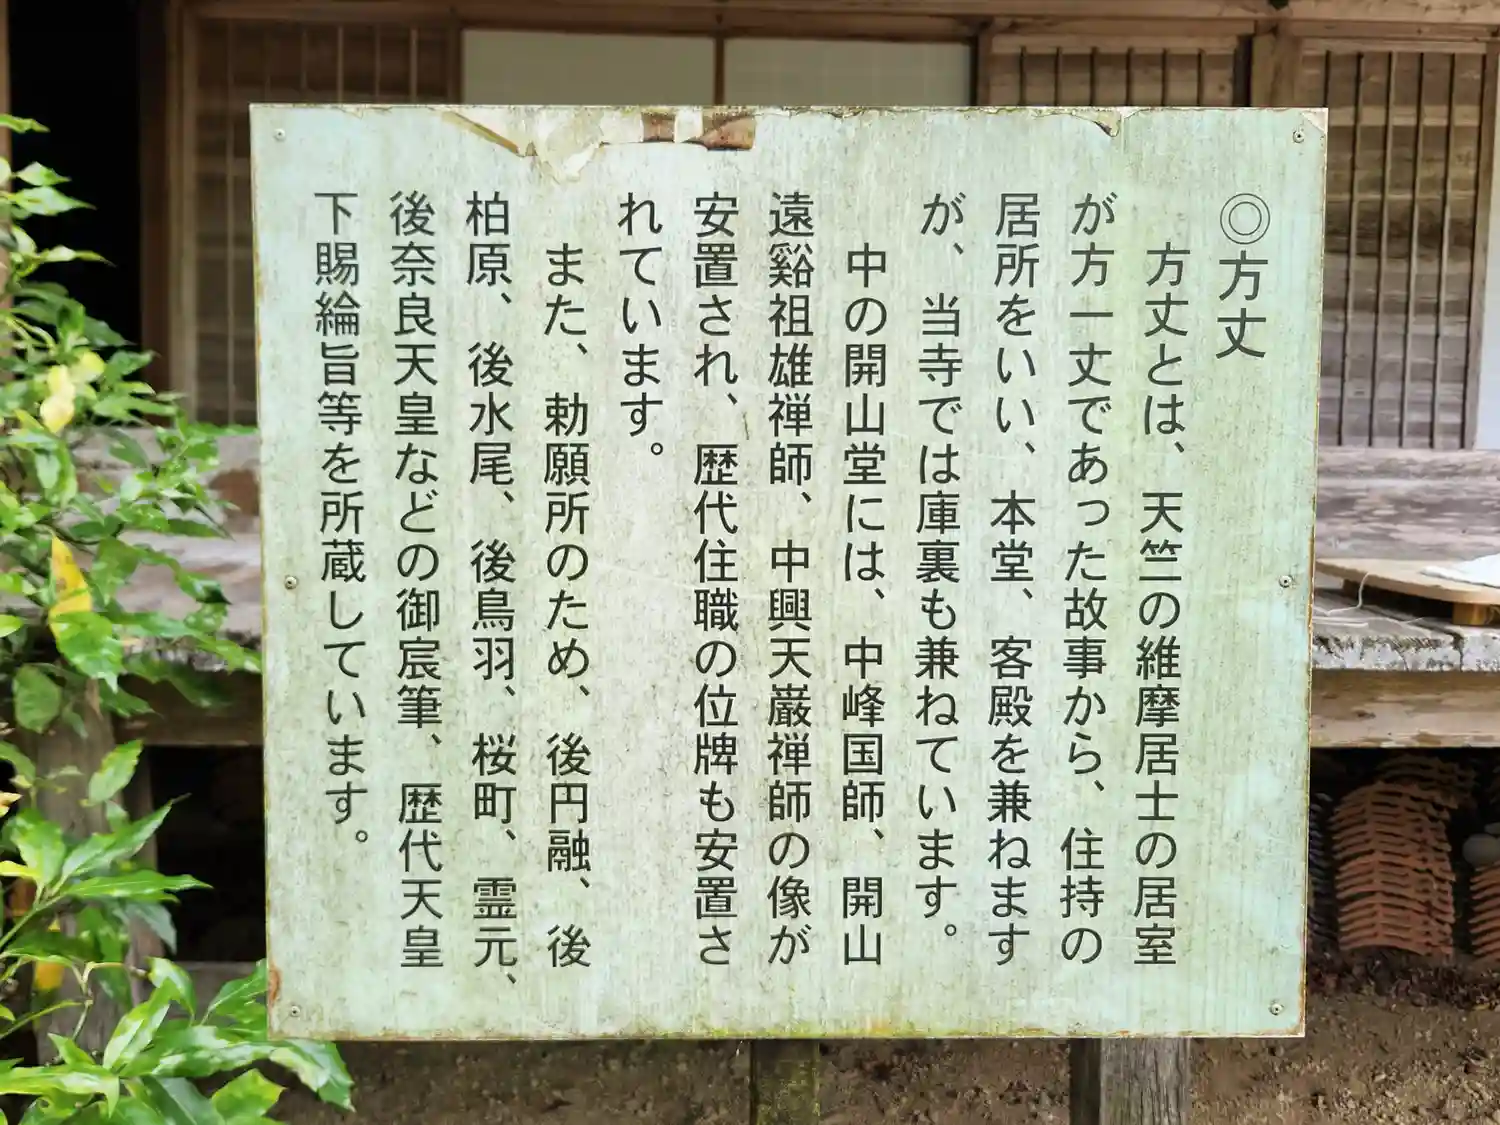 ◎方丈
方丈とは、天竺の維摩居士の居室
が方一丈であった故事から、住持の
居所をいい、本堂、客殿を兼ねます
が、当寺では庫裏も兼ねています。
中の開山堂には、中峰国師、開山
遠谿祖雄禅師、中興天巌禅師の像が
安置され、歴代住職の位牌も安置さ
れています。
また、勅願所のため、後円融、後
柏原、後水尾、後鳥羽、桜町、霊元、
後奈良天皇などの御宸筆、歴代天皇
下賜綸旨等を所蔵しています。